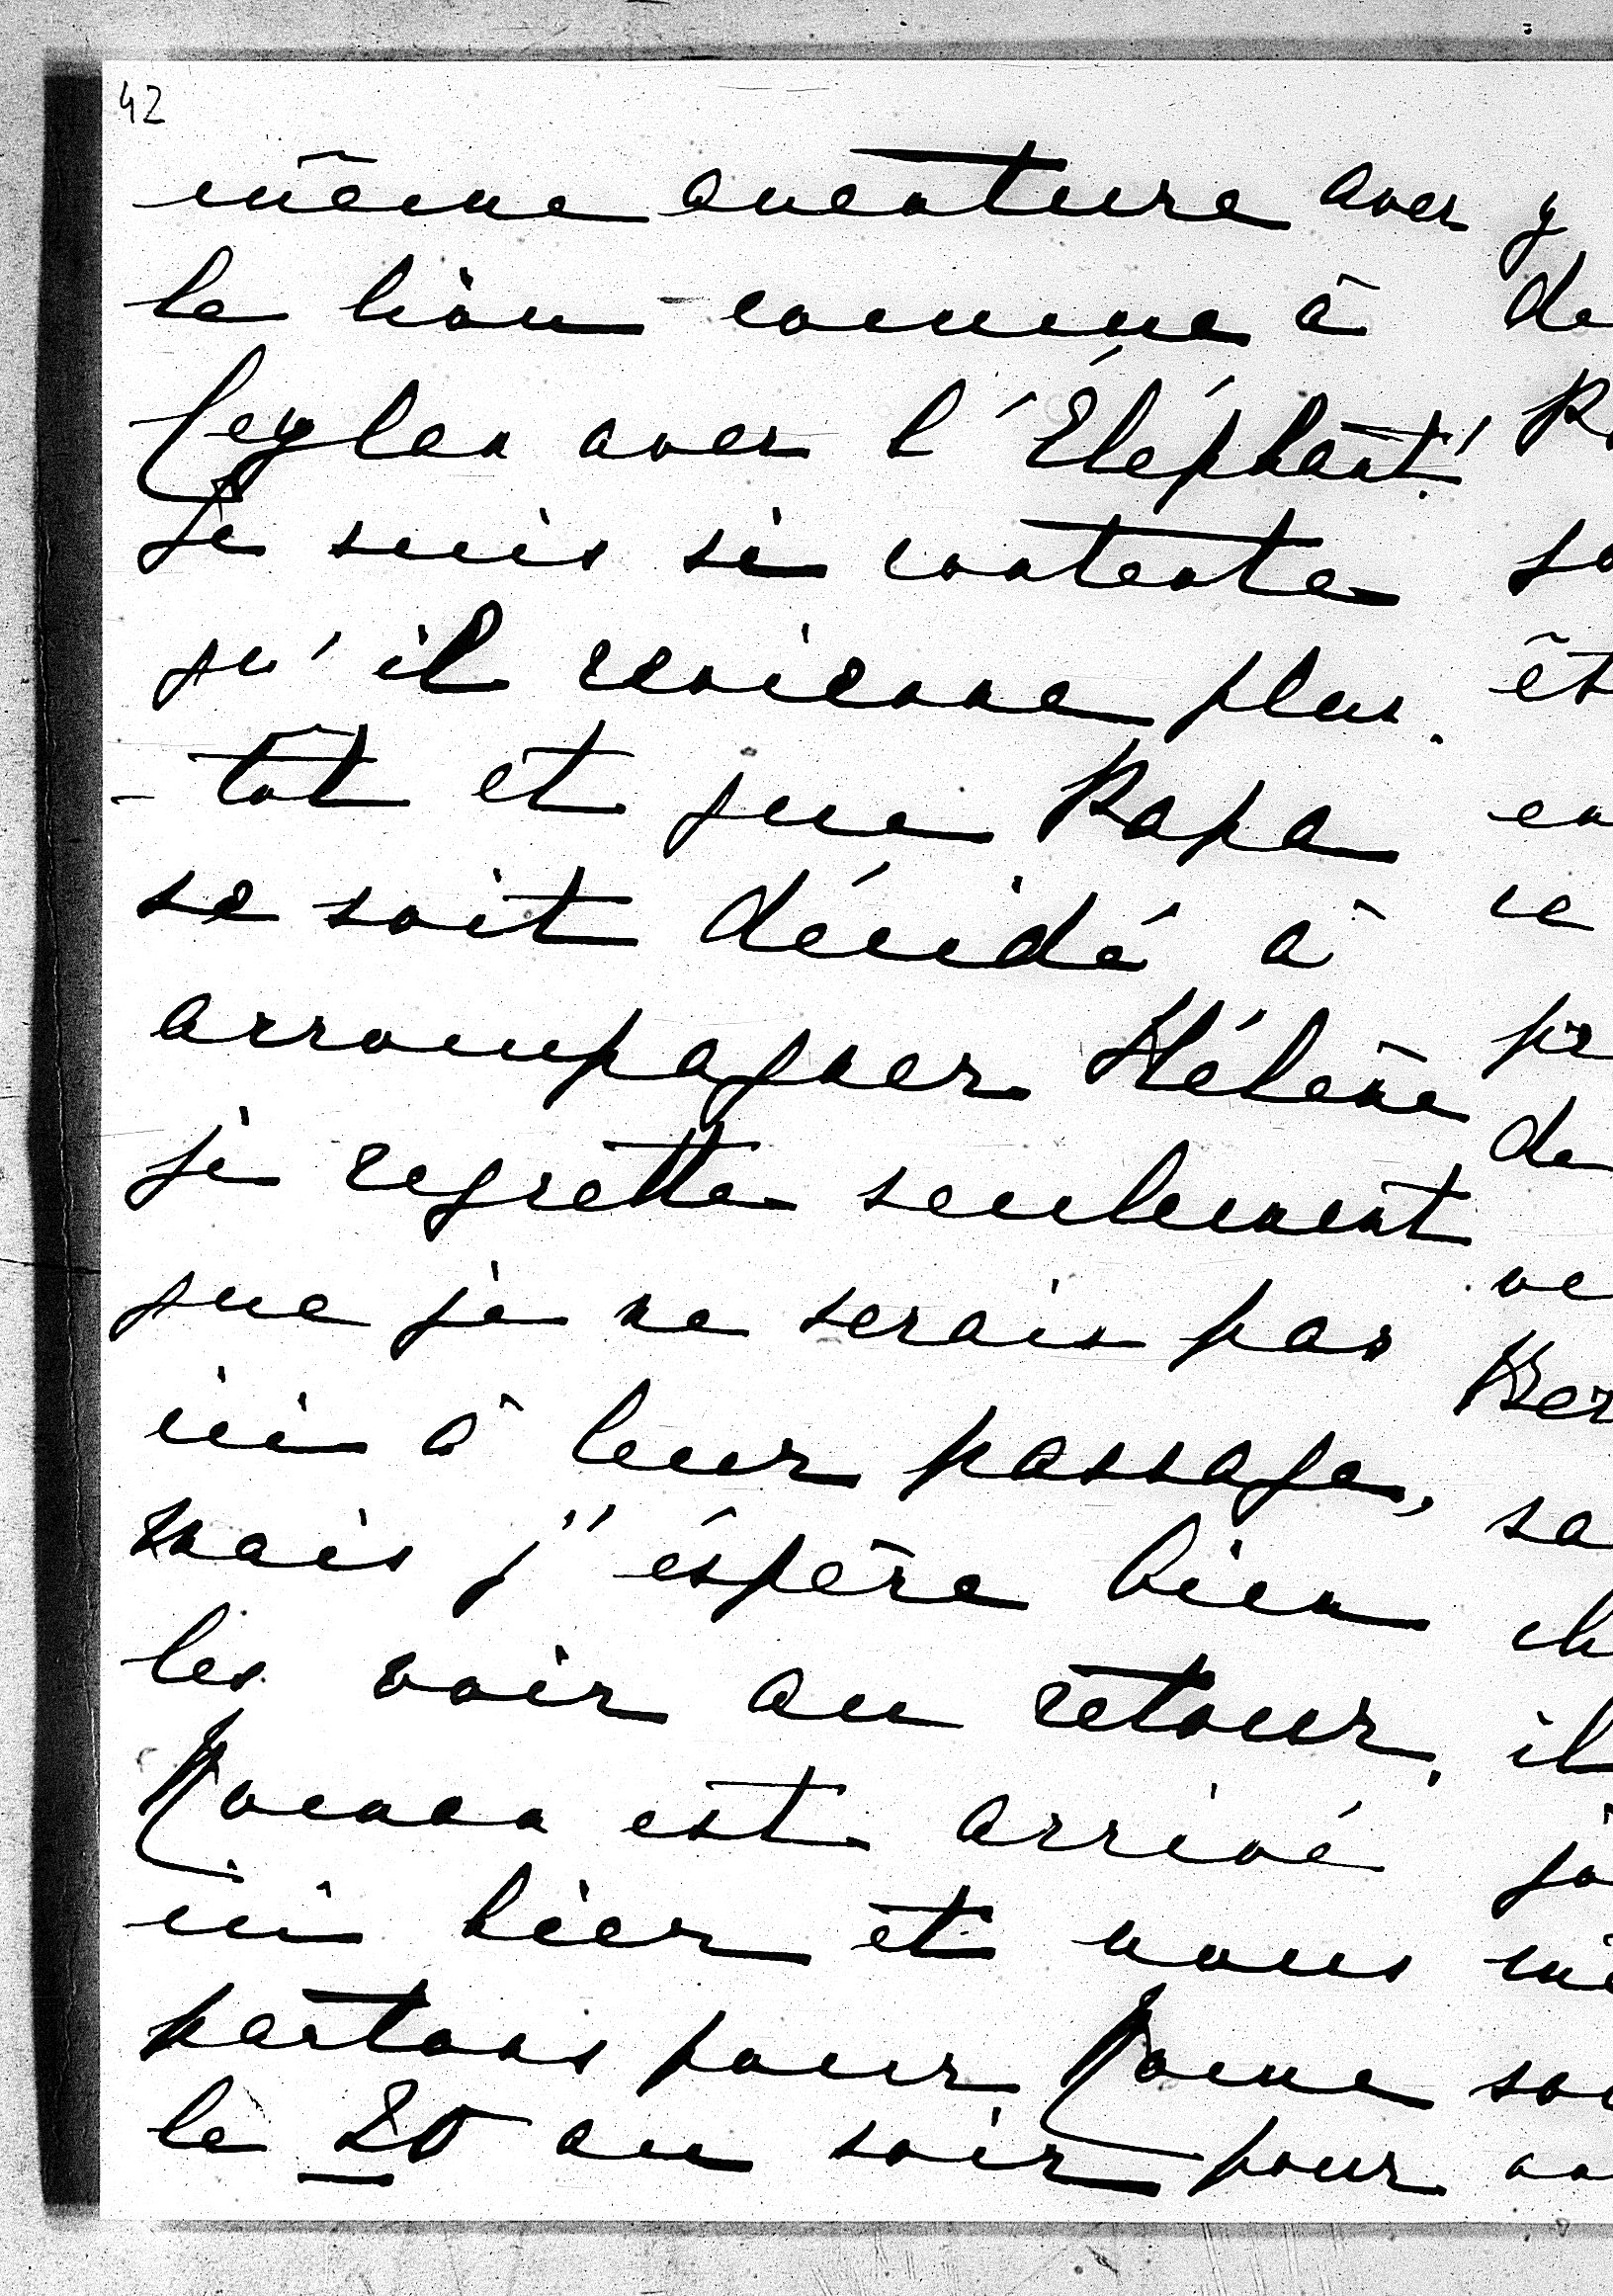 42
même aventure avec
le lion comme à
Ceylan avec l'Éléphant!
Je suis si contente
qu'il revienne plus
-tôt et que Papa
se soit décidé à
accompagner Hélène
je regrette seulement
que je ne serais pas
ici à leur passage,
mais j'éspère bien
les voir au retour.
est arrivé
ici hier et nous
partons pour Rome
le 20 au soir pour
y
de
êt
en
ce
pr
de
ve
sa
ch
il